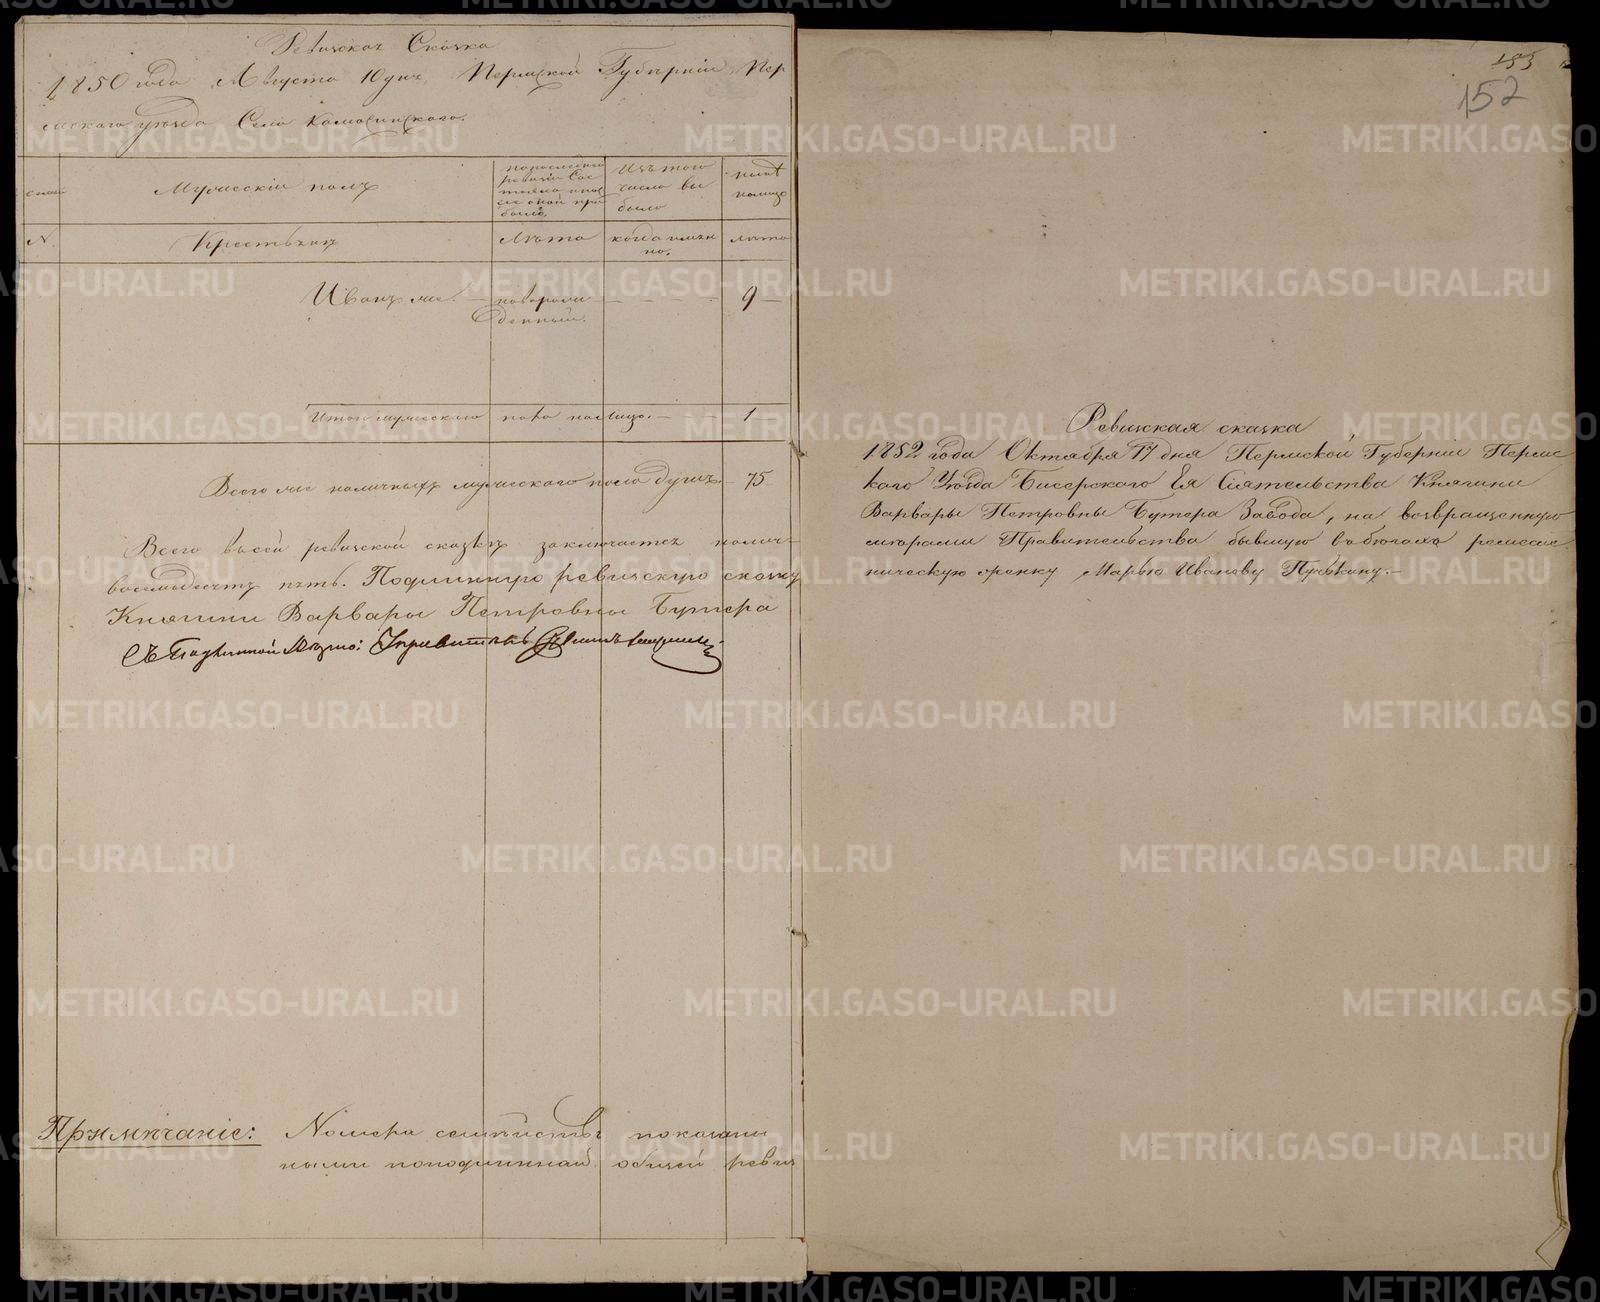 Ревизская Сказка
1850 года Августа 10 дня, Пермской Губерніи Пер
мскаго уѣзда Села Камасинскаго.
Мужескій полъ
по послѣдней
ревизіи Сос
тояло и пос
лѣ оной при
было,
Изъ того
числа вы
было
нынѣ
на лицо
№
Крестьянъ
Лѣта
когда имян
но.
лѣта
Иванъ
новорож
денный.
9
Итого мужескаго пола на лицо. 1
Всего наличныхъ мужескаго пола душъ 75
Всего в сей ревизской сказкѣ заключается налич-
пять. Подлинную ревизскую сказку
Княгини Варвары Петровны Бутера
Съ Подлинной вѣрно: Управитель
Примѣчаніе: Номера семействъ показаны
общей ревиз
155
152
Ревизская сказка
1852 года Октября 17 дня Пермской Губерніи Пермс
каго Уѣзда Бисерскаго Ея Сіятельства Княгини
Варвары Петровны Бутера Завода, на возвращенную
мѣрами Правительства бывшую в бѣгахъ ремеслен
ническую женку Марью Иванову
METRIKI.GASO-URAL.RU